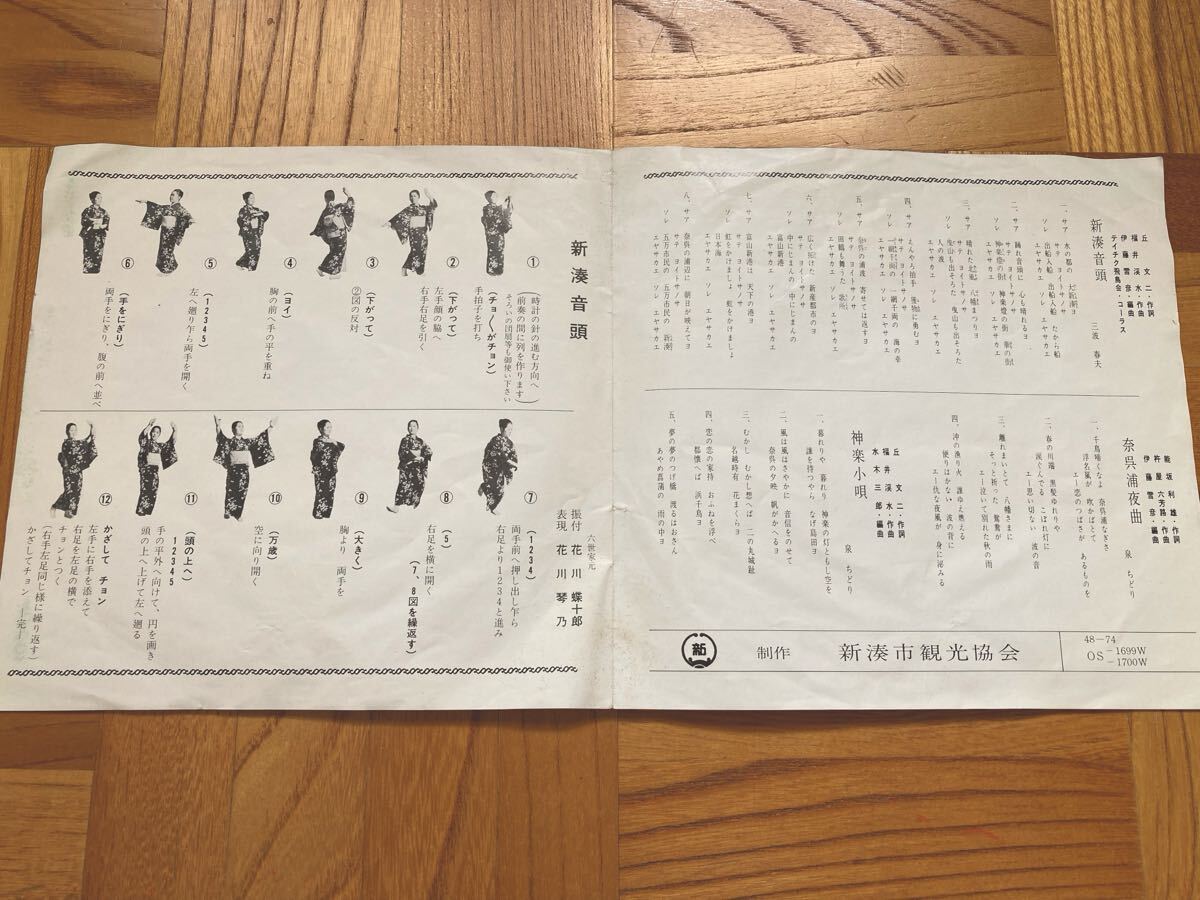 新湊音頭
丘 文二・作詞
福井溪水・作曲
伊藤雪彦・編曲
テイチク飛鳥会・コーラス
三波 春夫
一、サア 水の都の
サテ ヨイトサノサ
出船入船 出船入船 たから船
ソレ エヤサカエ ソレ エヤサカエ
二、サア 踊れ音頭に 心も晴れるヨ
サテ ヨイトサノサ
神楽燈の街 神楽燈の街
ソレ エヤサカエ ソレ エヤサカエ
三、サア 晴れた
サテ ヨイトサノサ
曳山も出そろた 曳山も出そろた
人の波
ソレ エヤサカエ ソレ エヤサカエ
四、サア えんやら拍子 獲物に勇むヨ
サテ ヨイトサノサ
一網千両の 一網千両の 海の幸
ソレ エヤサカエ ソレ エヤサカエ
五、サア 奈呉の浦波 寄せては返すヨ
サテ ヨイトサノサ
田鶴も舞うた 歌所
ソレ エヤサカエ ソレ エヤサカエ
六、サア 広く開けた 新産都市のヨ
サテ ヨイトサノサ
中にじまんの 中にじまんの
富山新港
ソレ エヤサカエ ソレ エヤサカエ
七、サア 富山新港は 天下の港ヨ
サテ ヨイトサノサ
虹をかけましょ 虹をかけましょ
日本海
ソレ エヤサカエ ソレ エヤサカエ
八、サア 奈呉の浦辺に 朝日が映えてヨ
サテ ヨイトサノサ
五万市民の 五万市民の 新湊
ソレ エヤサカエ ソレ エヤサカエ
奈呉浦夜曲
能坂利雄・作詞
杵屋六芳路・作曲
伊藤雪彦・編曲
泉 ちどり
一、千鳥啼くなよ 奈呉浦なぎさ
浮名風が 吹かばとて
エー恋のつばさが あるものを
二、春の川端 黒髪ゆれりゃ
涙ぐんでる こぼれ灯に
エー思い切ない 波の音
三、離れまいとて 八幡さまに
そっと祈った 鴛鴦が
エー泣いて別れた 秋の雨
四、沖の漁り火 誰ゆえ燃える
便りはかない 波の背に
エー仇な夜風が 身に沁みる
神楽小唄
丘 文二・作詞
福井溪水・作曲
水木三郎・編曲
泉 ちどり
一、暮れりや 暮れりや 神楽の灯ともし空を
誰を待つやら なげ島田ヨ
二、風は風はさやかに 音信をのせて
奈呉の夕映 帆がかへるヨ
三、むかし むかし想へば 二の丸城趾
名越時有 花まくらヨ
四、恋の恋の家持 おふねを浮べ
都懐へば 浜千鳥ヨ
五、夢の夢のつげ橋 渡るはおさん
あやめ菖蒲の 雨の中ヨ
制作 新湊市観光協会
48−74
OS−1699W
−1700W
新湊音頭
①
(時計の針の進む方向へ
前奏の間に列を作ります)
そろいの団扇等も御使い下さい
(チョ〱がチョン)
手拍子を打ち
②
(下がつて)
左手顔の脇へ
右手右足を引く
③
(下がつて)
②図の反対
④
(ヨイ)
胸の前へ手の平を重ね
⑤
(12345)
左へ廻り乍ら両手を開く
⑥
(手をにぎり)
両手をにぎり、腹の前へ並べ
六世家元
振付 花川 蝶十郎
表現 花川 琴乃
⑦
(1234)
両手前へ押し出し乍ら
右足より1234と進み
⑧
(5)
右足を横に開く
(7、8図を繰返す)
⑨
(大きく)
胸より 両手を
⑩
(万歳)
空に向り開く
⑪
(頭の上へ)
12345
手の平外へ向けて、円を画き
頭の上へ上げて左へ廻る
⑫
かざして チョン
左手に右手を添えて
右足を左足の横で
チョンとつく
(右手左足同じ様に繰り返す)
かざしてチョン ―完―
新